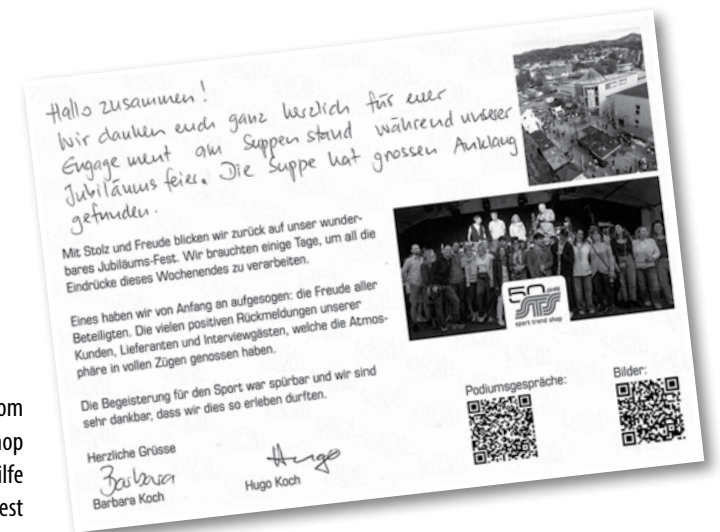 Hallo zusammen!
Wir danken euch ganz herzlich für euer
Engagement am Suppenstand während unserer
Jubiläumsfeier. Die Suppe hat grossen Anklang
gefunden.
Mit Stolz und Freude blicken wir zurück auf unser wunder-
bares Jubiläums-Fest. Wir brauchten einige Tage, um all die
Eindrücke dieses Wochenendes zu verarbeiten.
Eines haben wir von Anfang an aufgesogen: die Freude aller
Beteiligten. Die vielen positiven Rückmeldungen unserer
Kunden, Lieferanten und Interviewgästen, welche die Atmos-
phäre in vollen Zügen genossen haben.
Die Begeisterung für den Sport war spürbar und wir sind
sehr dankbar, dass wir dies so erleben durften.
Herzliche Grüsse
Barbara
Barbara Koch
Hugo
Hugo Koch
50 JAHRE
STS
sport trend shop
Podiumsgespräche:
Bilder:
om
hop
ilfe
est